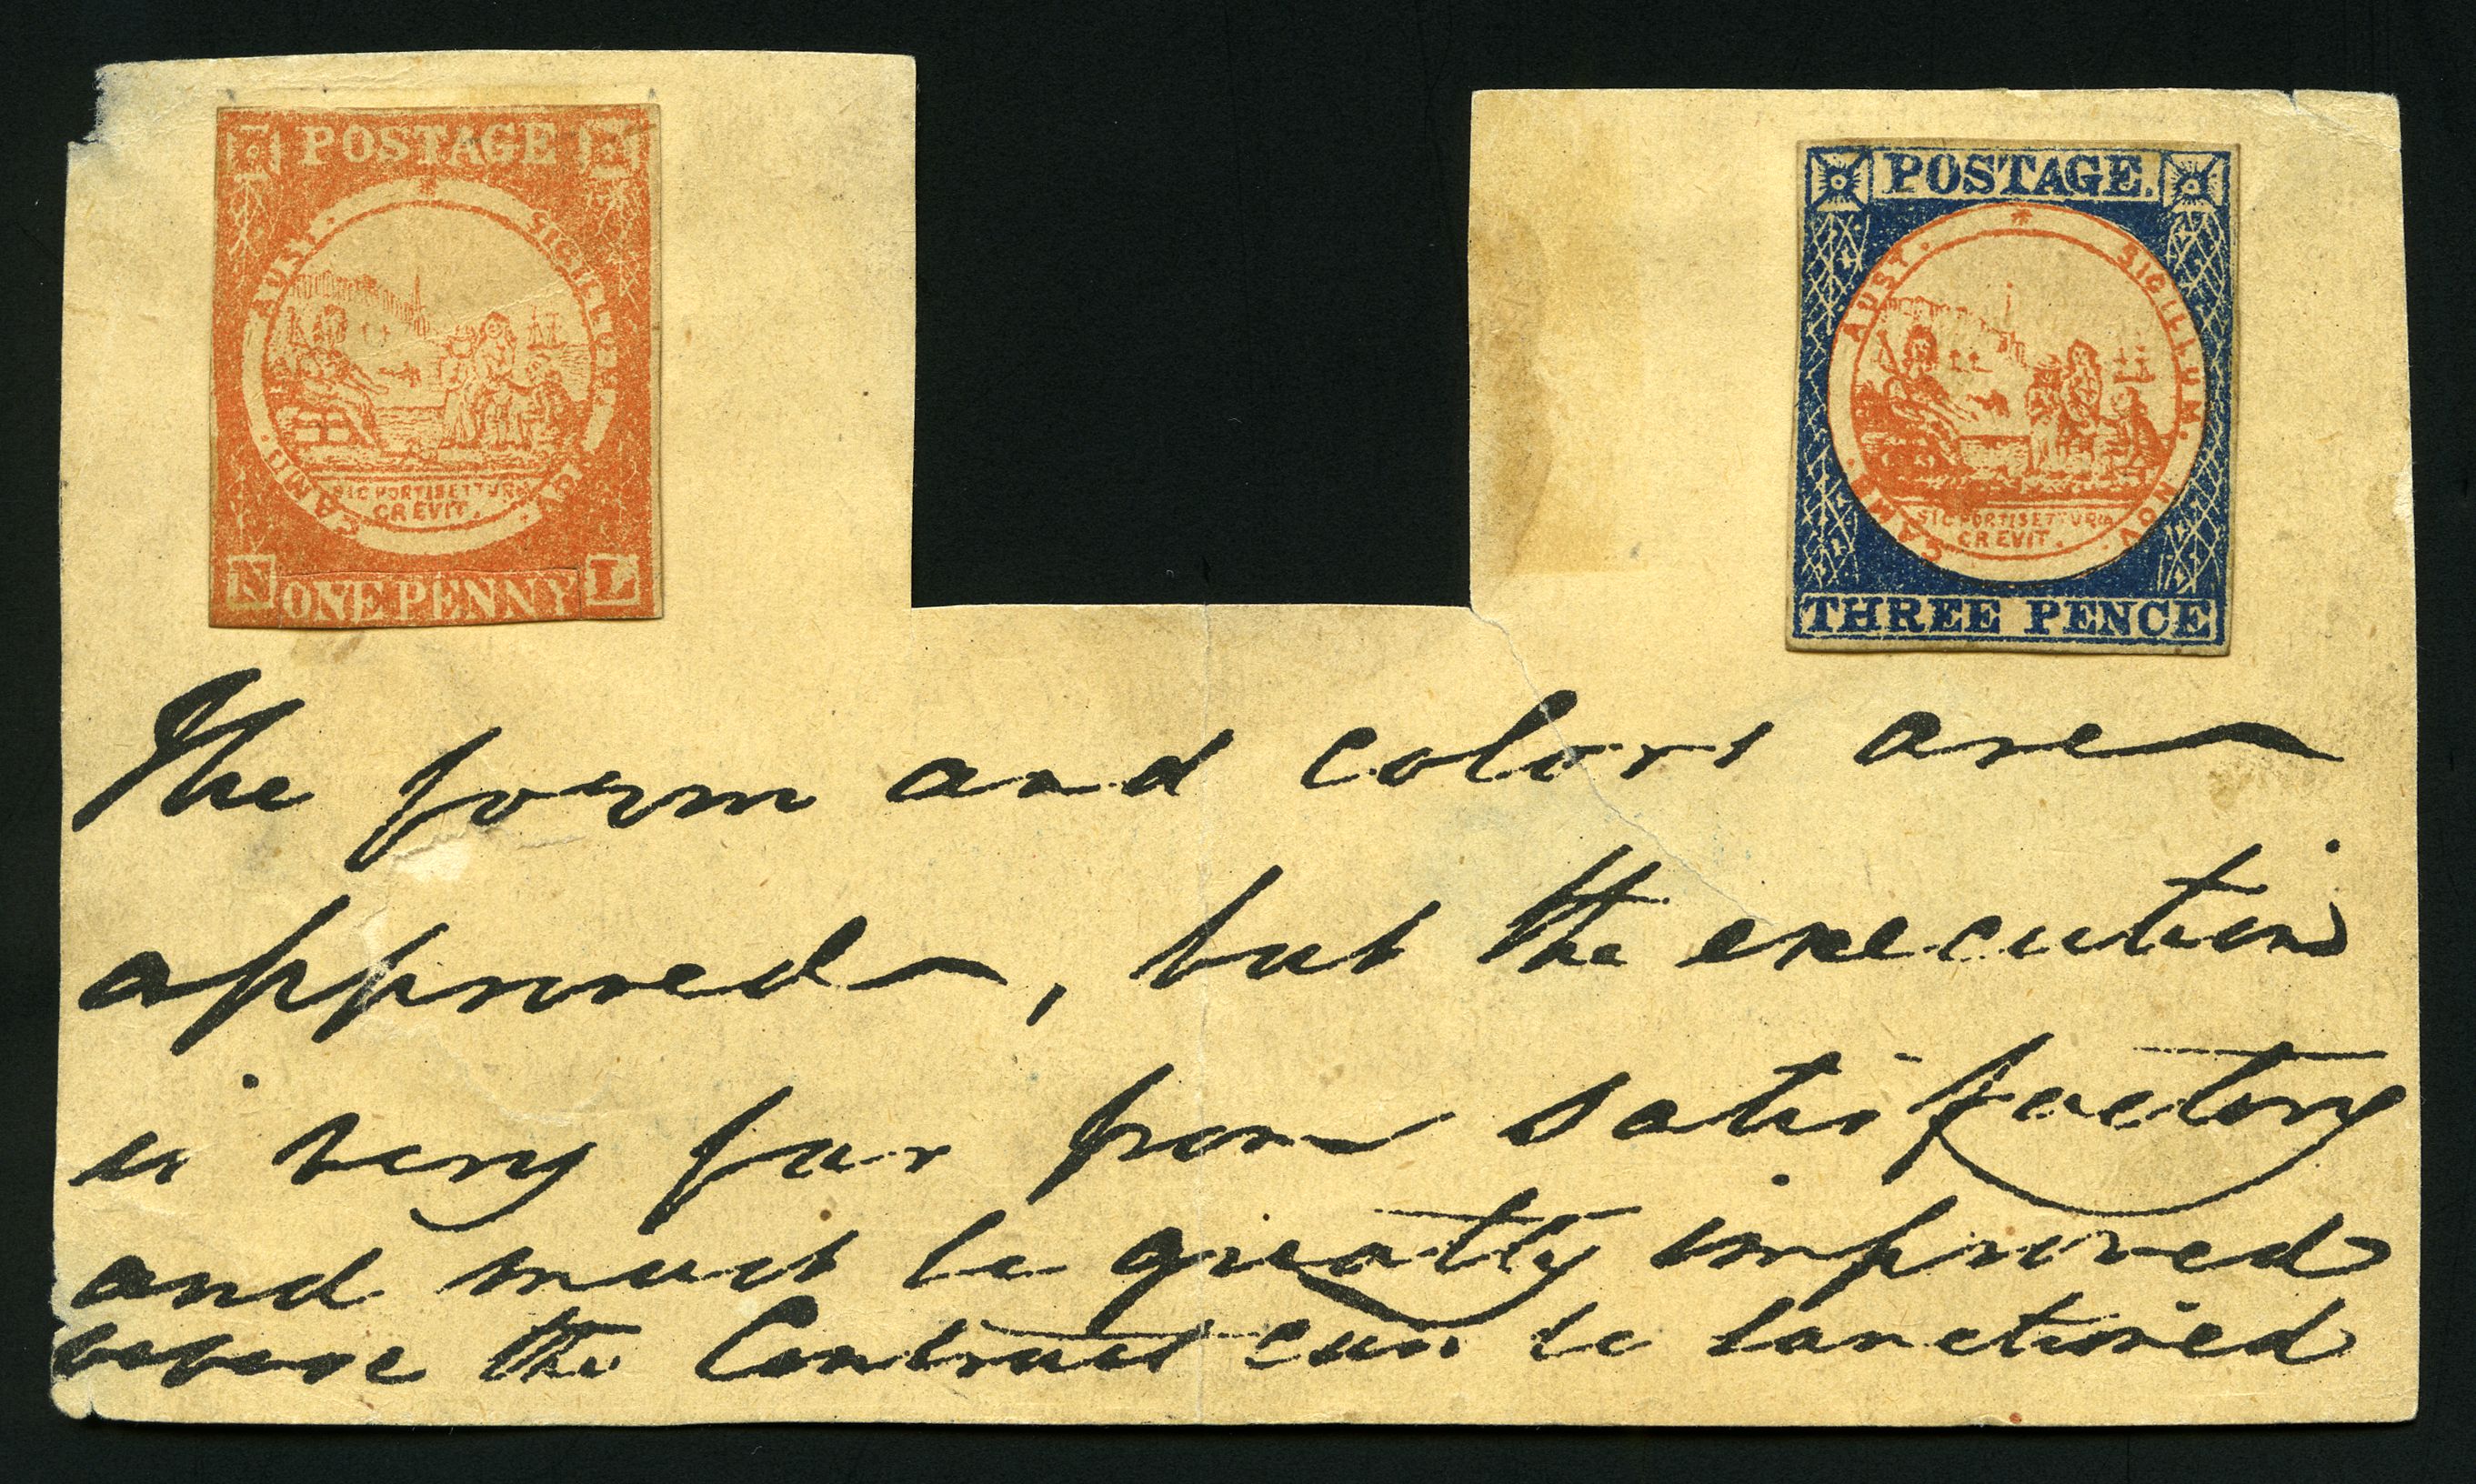 POSTAGE
AUST. SIGILLUM. NOV. CAMB.
SIC FORTIS ETTURIA
CREVIT.
N ONE PENNY L
POSTAGE.
AUST. SIGILLUM. NOV. CAMB.
SIC FORTIS ETTURIA
CREVIT.
THREE PENCE
The form and colors are
approved, but the execution
is very far from satisfactory
and must be greatly improved
before the Contract can be sanctioned